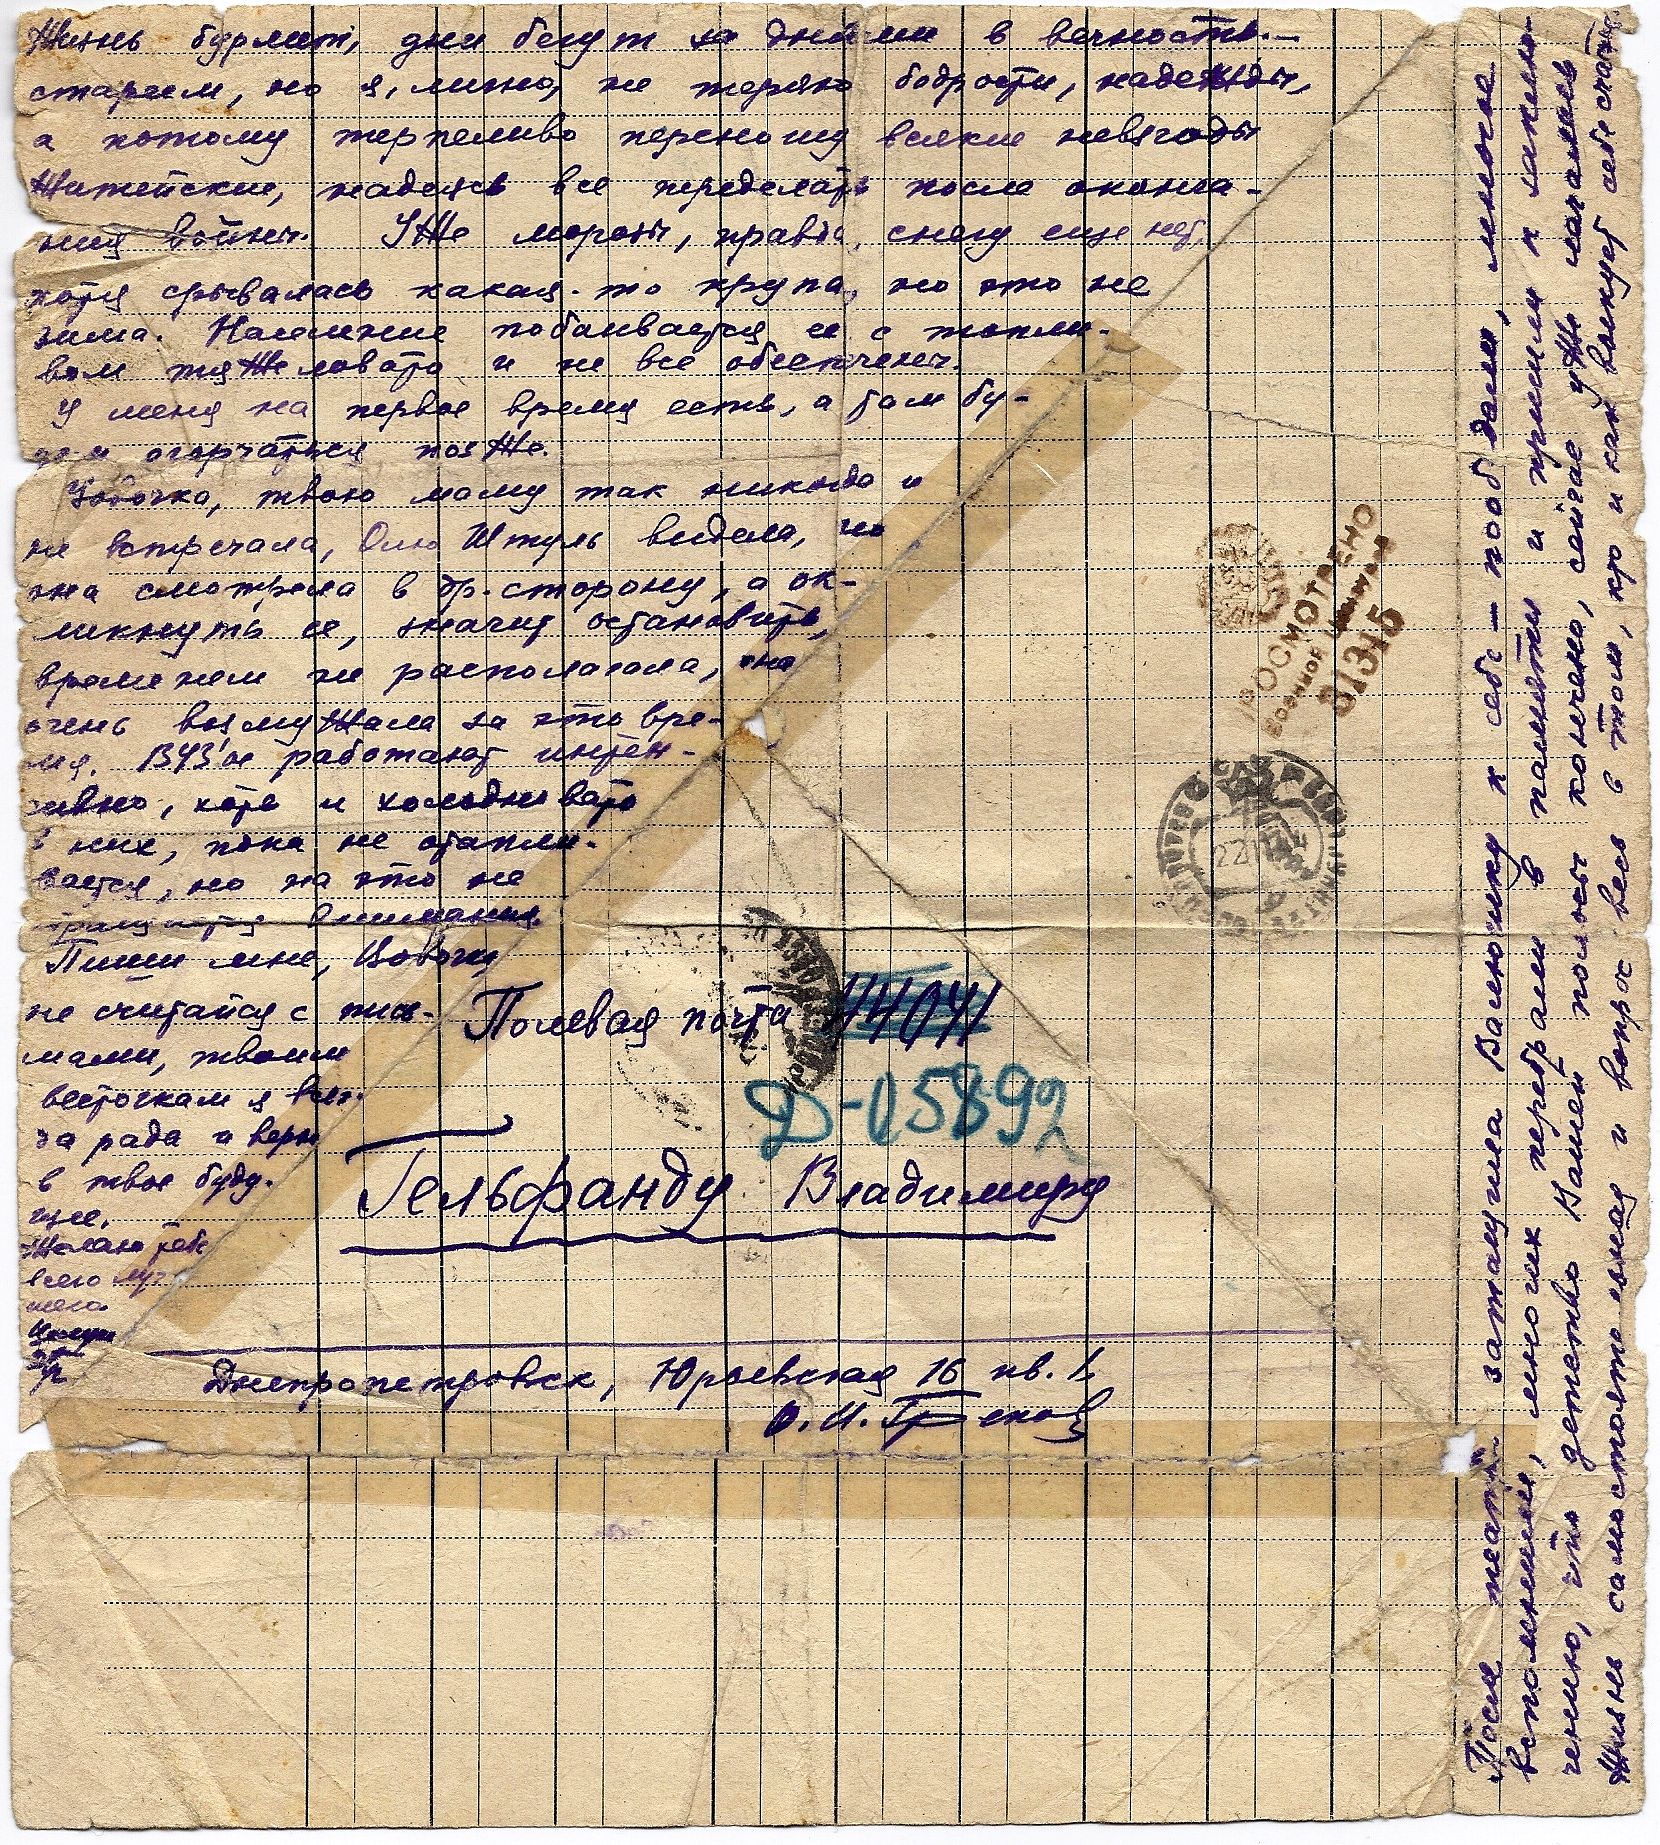 Жизнь бурлит, дни бегут за днями в вечность. —
стареем, но я, лично, не теряю бодрости, надежды,
а потому терпеливо переношу всякие невзгоды
житейские, надеясь все переделать после оконча-
ния войны. Уже морозы, правда, снегу еще нет,
хотя срывалась какая-то крупа, но это не
зима. Население побаивается ее с топли-
вом тяжеловато и не все обеспечены.
У меня на первое время есть, а там бу-
дем огорчаться позже.
Вовочка, твою маму так никогда и
не встречала, Олю Штуль видела, но
она смотрела в др. сторону, а ок-
ликнуть ее, значит остановить,
временем не располагала, она
очень возмужала за это вре-
мя. ВУЗ'ы работают интен-
сивно, хотя и холодновато
в них, пока не отапли-
вается, но на это не
обращается внимания.
Пиши мне, Вовочка,
не считайся с пись-
мами, твоим
весточкам я всег-
да рада и верю
в твое буду-
щее.
Желаю тебе
всего луч-
шего
Целую
Полевая почта 44041
Д-05892
Гельфанду Владимиру
Днепропетровск, Юрьевская 16 кв. 1.
О. И. Грекова
ПРОСМОТРЕНО
Военной Цензурой
01315
22
После театра затащила Валюшку к себе — пообедали, многое
вспомнили, многих перебрали в памяти и пришли к заключе-
чению, что детство Вашей пользы кончено, сейчас уже началась
жизнь самостоятельная и вопрос весь в том, кто и как выкует себе счастье